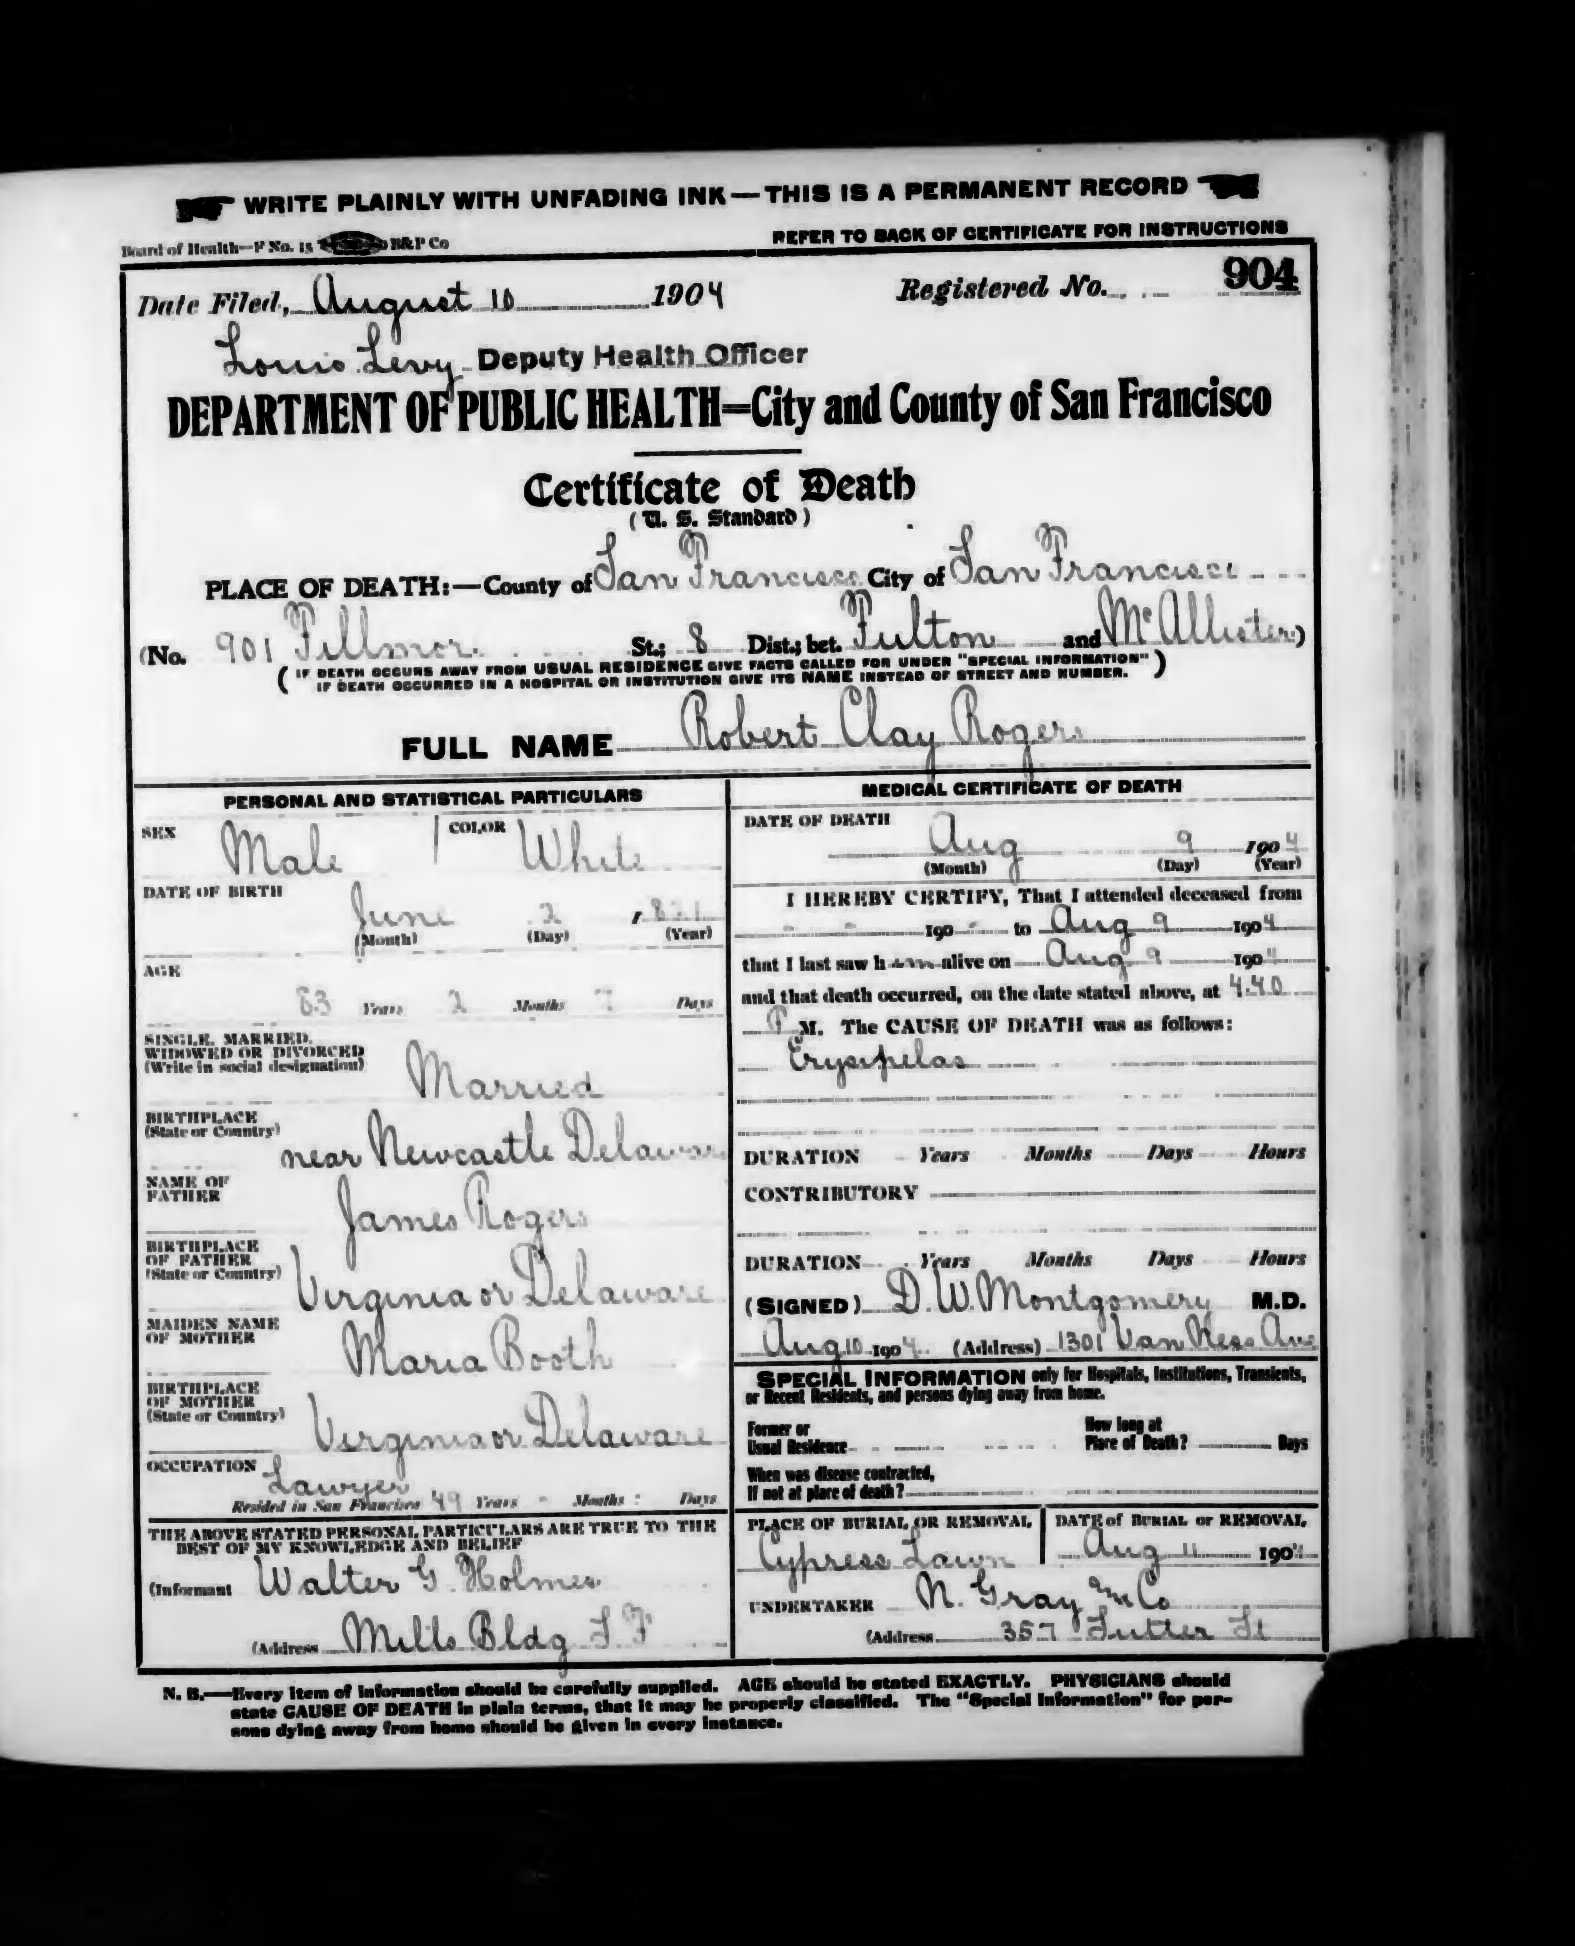 WRITE PLAINLY WITH UNFADING INK — THIS IS A PERMANENT RECORD
Board of Health—F No. 15 B&P Co REFER TO BACK OF CERTIFICATE FOR INSTRUCTIONS
Date Filed, August 10 1904 Registered No. 904
Louis Levy Deputy Health Officer
DEPARTMENT OF PUBLIC HEALTH=City and County of San Francisco
Certificate of Death
(U. S. Standard)
PLACE OF DEATH:—County of San Francisco City of San Francisco
(No. 901 Fillmor. St.; 8 Dist.; bet. Fulton and McAllister)
(IF DEATH OCCURS AWAY FROM USUAL RESIDENCE GIVE FACTS CALLED FOR UNDER "SPECIAL INFORMATION")
(IF DEATH OCCURRED IN A HOSPITAL OR INSTITUTION GIVE ITS NAME INSTEAD OF STREET AND NUMBER.
FULL NAME Robert Clay Rogers
PERSONAL AND STATISTICAL PARTICULARS
SEX Male COLOR White
DATE OF BIRTH June 2 1821
(Month) (Day) (Year)
AGE
83 Years 2 Months 7 Days
SINGLE, MARRIED,
WIDOWED OR DIVORCED
(Write in social designation) Married
BIRTHPLACE
(State or Country) near Newcastle Delaware
NAME OF
FATHER James Rogers
BIRTHPLACE
OF FATHER
(State or Country) Virginia or Delaware
MAIDEN NAME
OF MOTHER Maria Booth
BIRTHPLACE
OF MOTHER
(State or Country) Virginia or Delaware
OCCUPATION Lawyer
Resided in San Francisco 49 Years - Months Days
THE ABOVE STATED PERSONAL PARTICULARS ARE TRUE TO THE
BEST OF MY KNOWLEDGE AND BELIEF
(Informant Walter G. Holmes
(Address Mills Bldg S. F.
MEDICAL CERTIFICATE OF DEATH
DATE OF DEATH
Aug 9 1904
(Month) (Day) (Year)
I HEREBY CERTIFY, That I attended deceased from
- - 190 - to Aug 9 1904
that I last saw him alive on Aug 9 1904
and that death occurred, on the date stated above, at 4.40
P M. The CAUSE OF DEATH was as follows:
Erysipelas
DURATION Years Months Days Hours
CONTRIBUTORY
DURATION Years Months Days Hours
(SIGNED) D. W. Montgomery M.D.
Aug 10 1904 (Address) 1301 Van Ness Ave
SPECIAL INFORMATION only for Hospitals, Institutions, Transients,
or Recent Residents, and persons dying away from home.
Former or
Usual Residence
How long at
Place of Death? Days
When was disease contracted,
If not at place of death?
PLACE OF BURIAL OR REMOVAL
Cypress Lawn
DATE of BURIAL or REMOVAL
Aug 11 1904
UNDERTAKER N. Gray & Co
(Address 357 Sutter St
N. B.—Every item of information should be carefully supplied. AGE should be stated EXACTLY. PHYSICIANS should
state CAUSE OF DEATH in plain terms, that it may be properly classified. The "Special Information" for per-
sons dying away from home should be given in every instance.